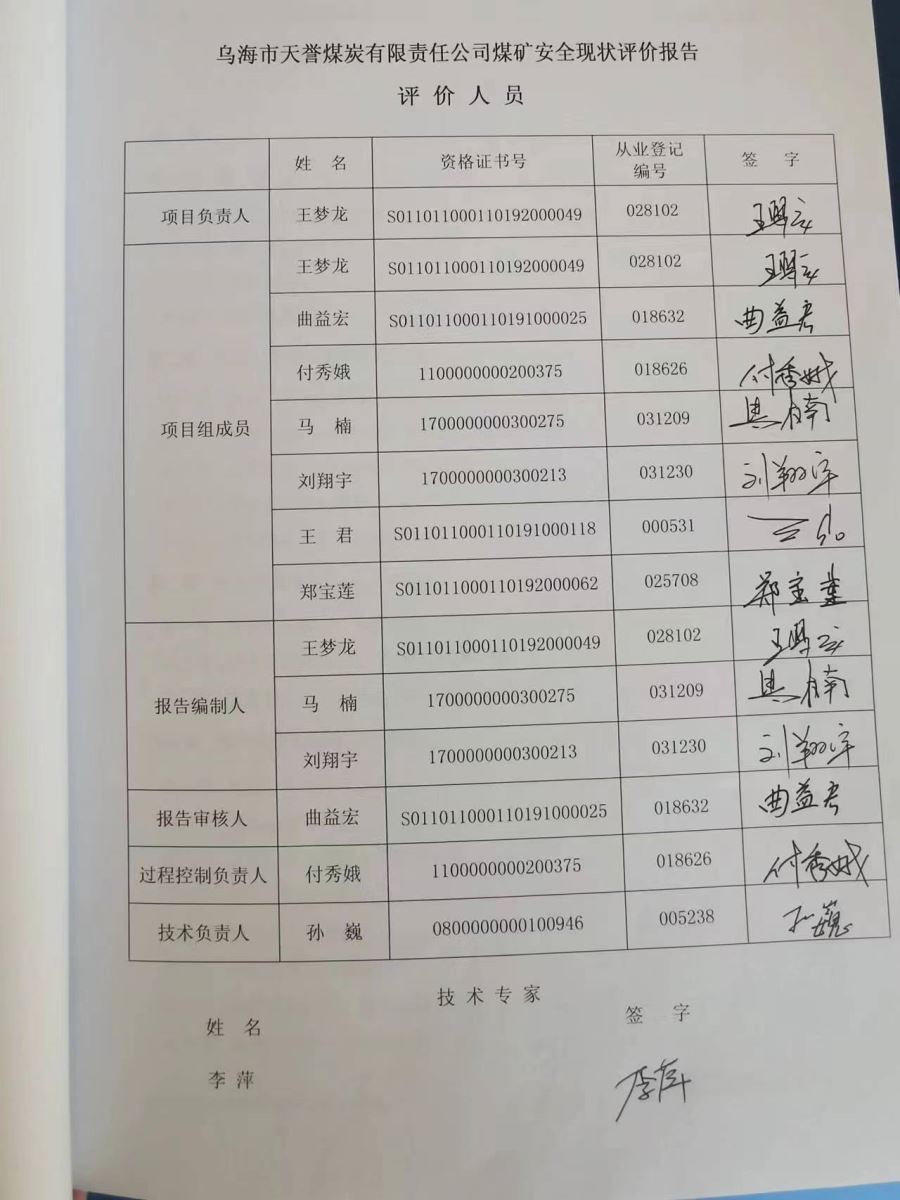 乌海市天誉煤炭有限责任公司煤矿安全现状评价报告
评价人员
姓 名 资格证书号 从业登记编号 签 字
项目负责人 王梦龙 S011011000110192000049 028102
项目组成员 王梦龙 S011011000110192000049 028102
曲益宏 S011011000110191000025 018632 曲益宏
付秀娥 1100000000200375 018626 付秀娥
马 楠 1700000000300275 031209 马楠
刘翔宇 1700000000300213 031230 刘翔宇
王 君 S011011000110191000118 000531
郑宝莲 S011011000110192000062 025708 郑宝莲
报告编制人 王梦龙 S011011000110192000049 028102
马 楠 1700000000300275 031209 马楠
刘翔宇 1700000000300213 031230 刘翔宇
报告审核人 曲益宏 S011011000110191000025 018632 曲益宏
过程控制负责人 付秀娥 1100000000200375 018626 付秀娥
技术负责人 孙 巍 0800000000100946 005238 孙巍
技术专家
姓 名 签 字
李 萍 李萍